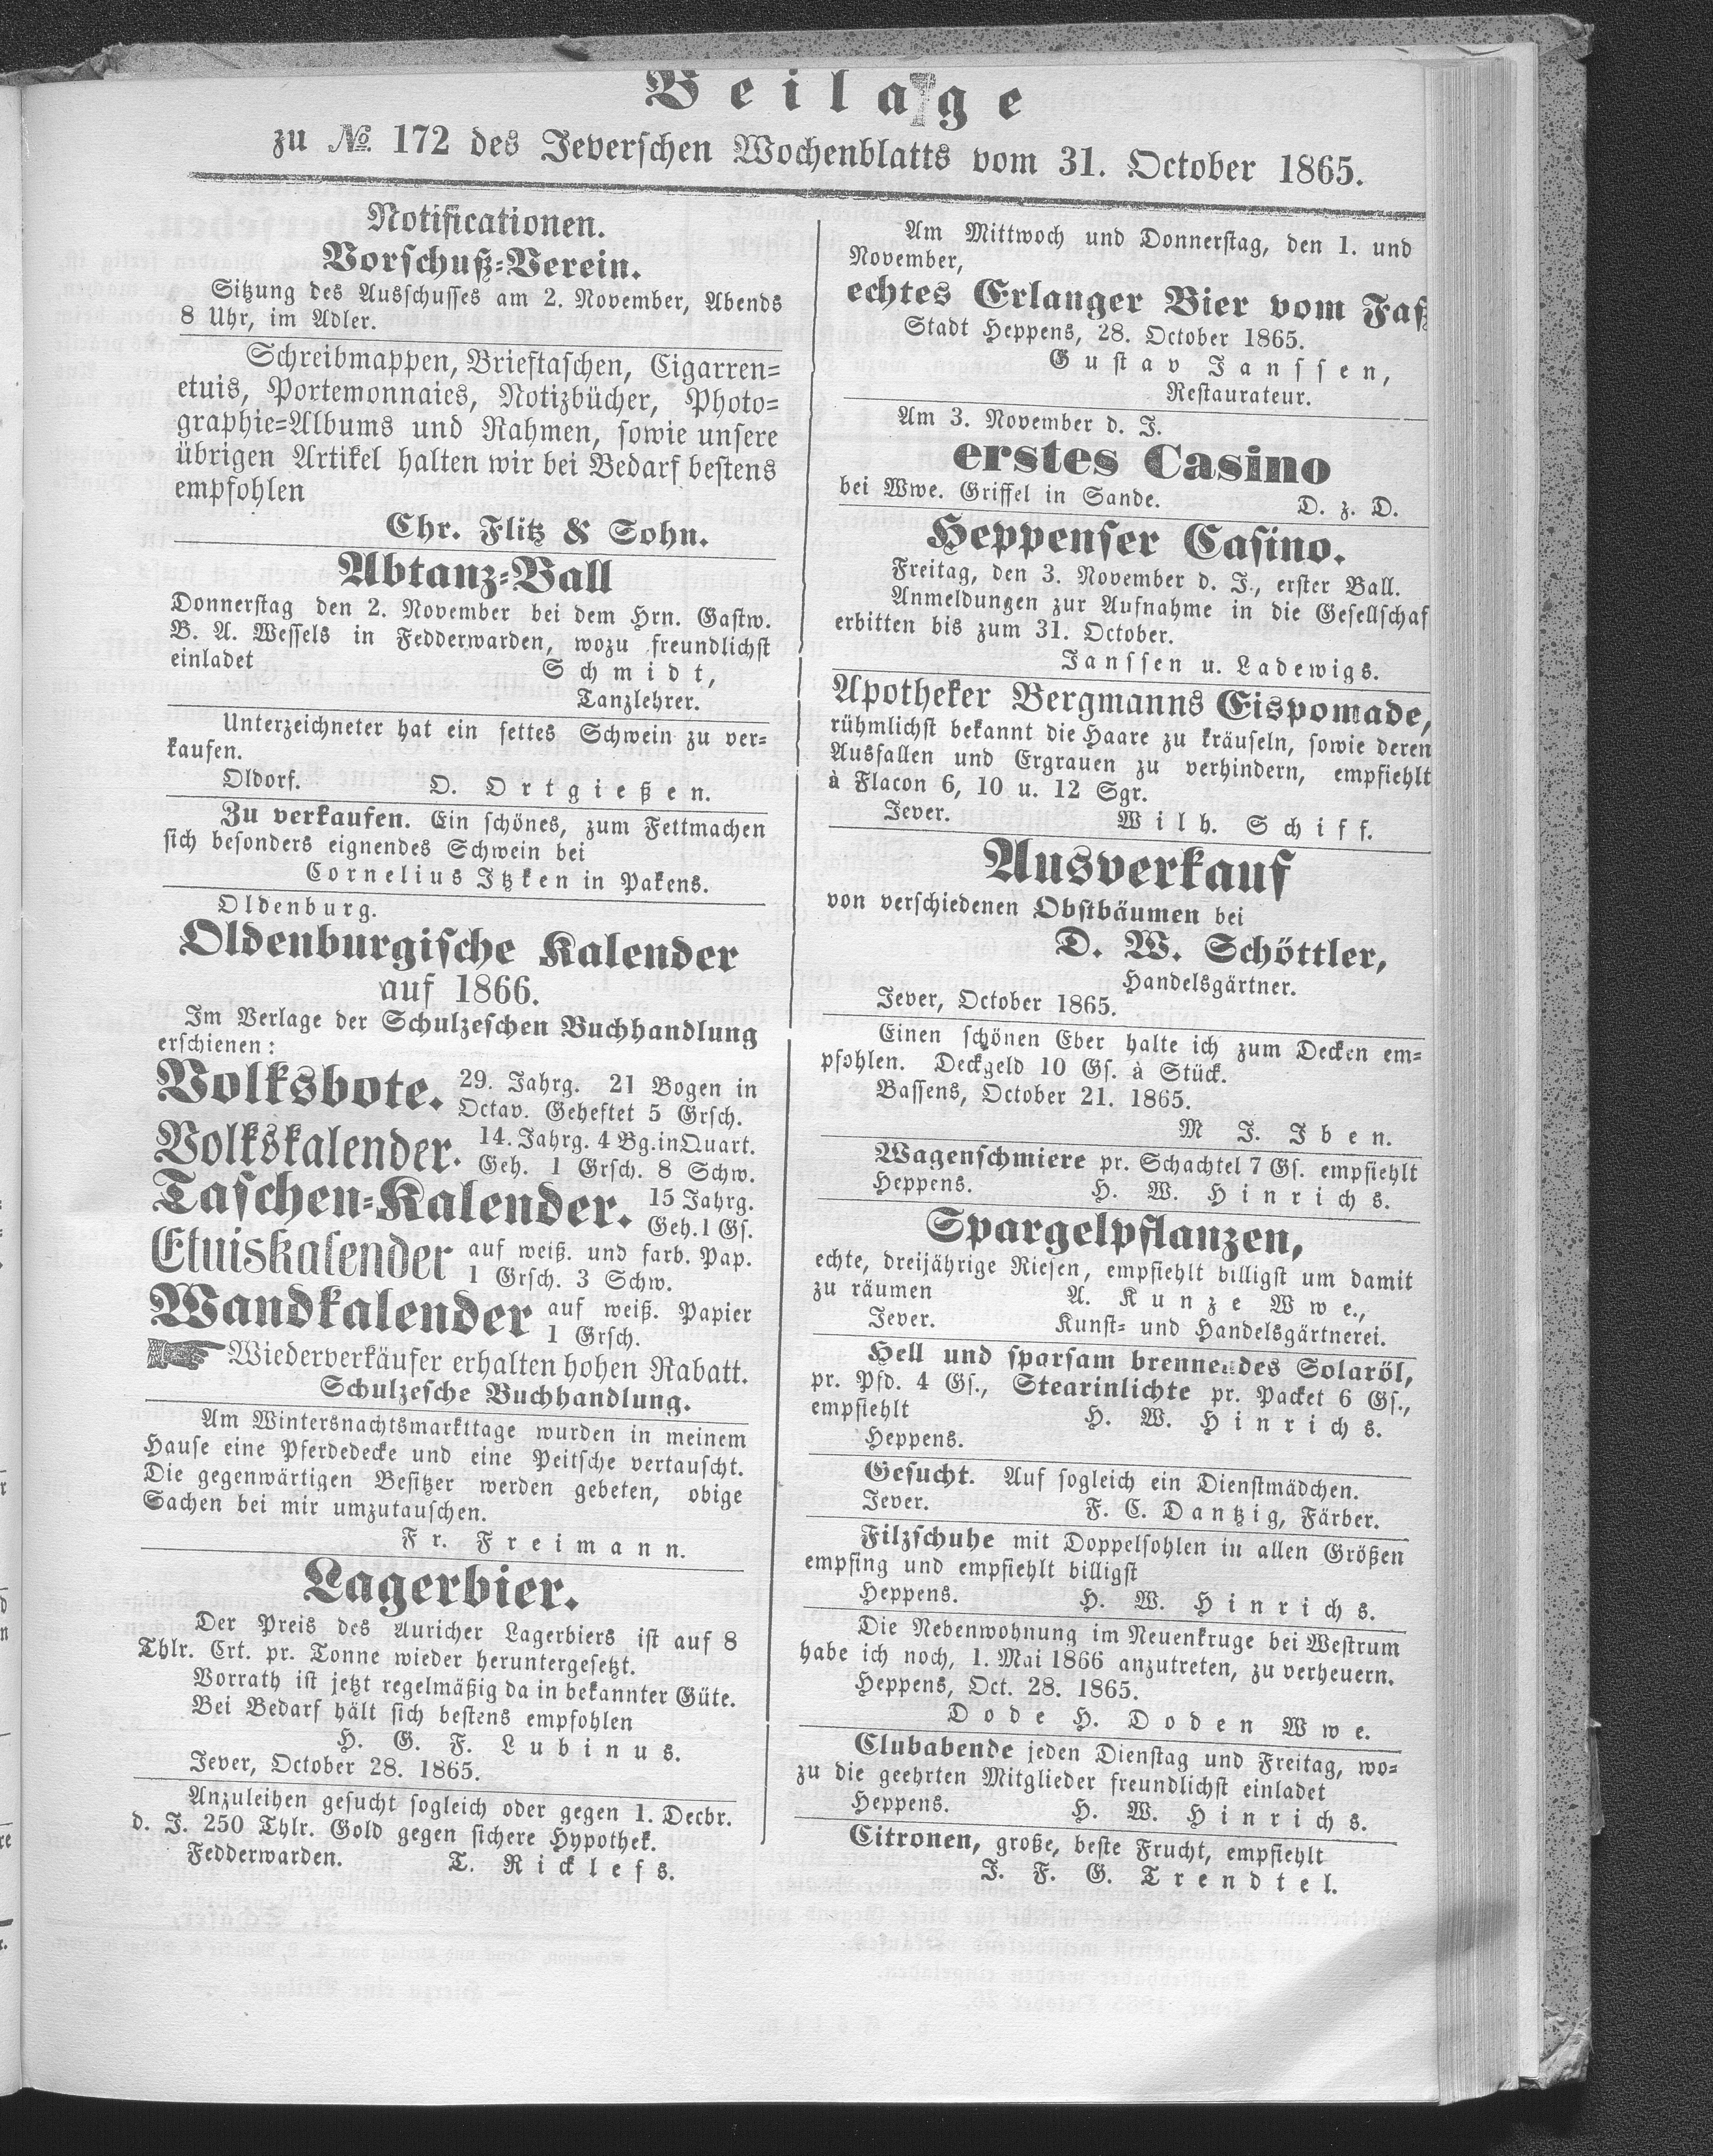 Beilage
zu № 172 des Jeverschen Wochenblatts vom 31. October 1865.
Notificationen.
Vorschuß-Verein.
Sitzung des Ausschusses am 2. November, Abends
8 Uhr, im Adler.
Schreibmappen, Brieftaschen, Cigarren-
etuis, Portemonnaies, Notizbücher, Photo-
graphie-Albums und Rahmen, sowie unsere
übrigen Artikel halten wir bei Bedarf bestens
empfohlen
Chr. Flitz & Sohn.
Abtanz-Ball
Donnerstag den 2. November bei dem Hrn. Gastw.
B. A. Wessels in Fedderwarden, wozu freundlichst
einladet Schmidt,
Tanzlehrer.
Unterzeichneter hat ein fettes Schwein zu ver-
kaufen.
Oldorf. O. Ortgießen.
Zu verkaufen. Ein schönes, zum Fettmachen
sich besonders eignendes Schwein bei
Cornelius Itzken in Pakens.
Oldenburg.
Oldenburgische Kalender
auf 1866.
Im Verlage der Schulzeschen Buchhandlung
erschienen:
Volksbote. 29. Jahrg. 21 Bogen in
Octav. Geheftet 5 Grsch.
Volkskalender. 14. Jahrg. 4 Bg. in Quart.
Geh. 1 Grsch. 8 Schw.
Taschen-Kalender. 15 Jahrg.
Geh. 1 Gs.
Etuiskalender auf weiß. und farb. Pap.
1 Grsch. 3 Schw.
Wandkalender auf weiß. Papier
1 Grsch.
Wiederverkäufer erhalten hohen Rabatt.
Schulzesche Buchhandlung.
Am Wintersnachtsmarkttage wurden in meinem
Hause eine Pferdedecke und eine Peitsche vertauscht.
Die gegenwärtigen Besitzer werden gebeten, obige
Sachen bei mir umzutauschen.
Fr. Freimann.
Lagerbier.
Der Preis des Auricher Lagerbiers ist auf 8
Thlr. Crt. pr. Tonne wieder heruntergesetzt.
Vorrath ist jetzt regelmäßig da in bekannter Güte.
Bei Bedarf hält sich bestens empfohlen
H. G. F. Lubinus.
Jever, October 28. 1865.
Anzuleihen gesucht sogleich oder gegen 1. Decbr.
d. J. 250 Thlr. Gold gegen sichere Hypothek.
Fedderwarden. T. Ricklefs.
Am Mittwoch und Donnerstag, den 1. und
November,
echtes Erlanger Bier vom Faß
Stadt Heppens, 28. October 1865.
Gustav Janssen,
Restaurateur.
Am 3. November d. J.
erstes Casino
bei Wwe. Griffel in Sande. D. z. D.
Heppenser Casino.
Freitag, den 3. November d. J., erster Ball.
Anmeldungen zur Aufnahme in die Gesellschaf
erbitten bis zum 31. October.
Janssen u. Ladewigs.
Apotheker Bergmanns Eispomade,
rühmlichst bekannt die Haare zu kräuseln, sowie deren
Ausfallen und Ergrauen zu verhindern, empfiehlt
à Flacon 6, 10 u. 12 Sgr.
Jever. Wilh. Schiff.
Ausverkauf
von verschiedenen Obstbäumen bei
D. W. Schöttler,
Handelsgärtner.
Jever, October 1865.
Einen schönen Eber halte ich zum Decken em-
pfohlen. Deckgeld 10 Gs. à Stück.
Bassens, October 21. 1865.
M J. Iben.
Wagenschmiere pr. Schachtel 7 Gs. empfiehlt
Heppens. H. W. Hinrichs.
Spargelpflanzen,
echte, dreijährige Riesen, empfiehlt billigst um damit
zu räumen A. Kunze Wwe.,
Jever. Kunst- und Handelsgärtnerei.
Hell und sparsam brennendes Solaröl,
pr. Pfd. 4 Gs., Stearinlichte pr. Packet 6 Gs.,
empfiehlt H. W. Hinrichs.
Heppens.
Gesucht. Auf sogleich ein Dienstmädchen.
Jever. F. C. Dantzig, Färber.
Filzschuhe mit Doppelsohlen in allen Größen
empfing und empfiehlt billigst
Heppens. H. W. Hinrichs.
Die Nebenwohnung im Neuenkruge bei Westrum
habe ich noch, 1. Mai 1866 anzutreten, zu verheuern.
Heppens, Oct. 28. 1865.
Dode H. Doden Wwe.
Clubabende jeden Dienstag und Freitag, wo-
zu die geehrten Mitglieder freundlichst einladet
Heppens. H. W. Hinrichs.
Citronen, große, beste Frucht, empfiehlt
J. F. G. Trendtel.